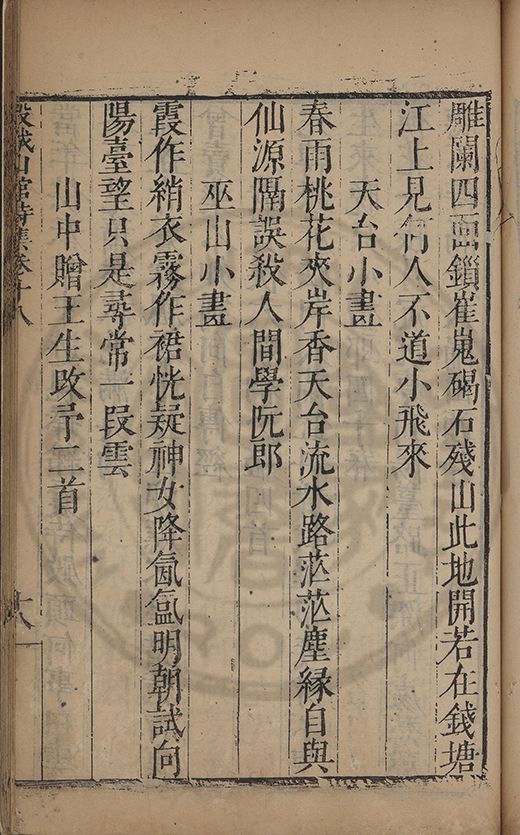 雕闌四面鎖崔嵬碣石殘山此地開若在錢塘
江上見何人不道小飛來
天台小畫
春雨桃花夾岸香天台流水路茫茫塵緣自與
仙源隔誤殺人間學阮郎
巫山小畫
霞作綃衣霧作裙恍疑神女降氤氳明朝試向
陽臺望只是尋常一段雲
山中贈王生政予二首
城山館詩集卷十八
十八